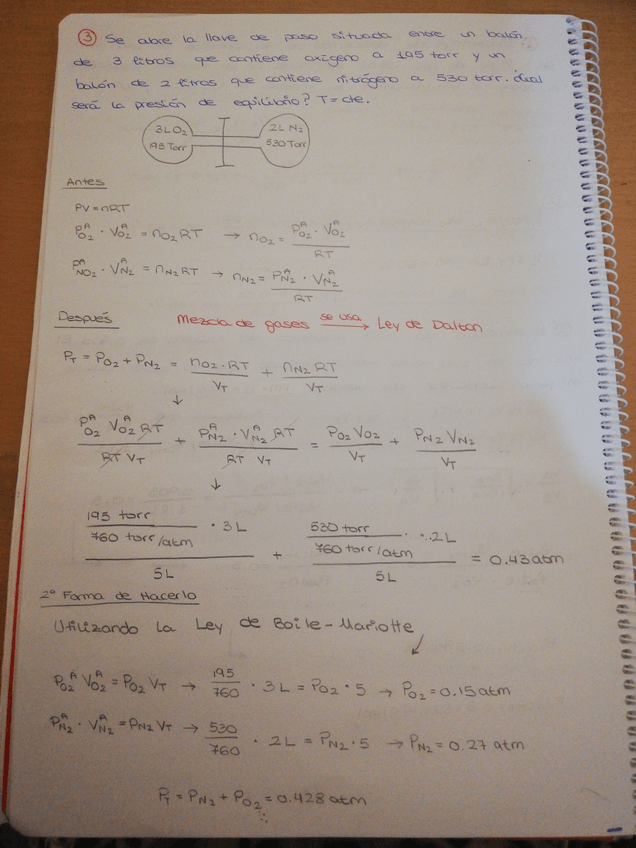 ③ Se abre la llave de paso situada entre un balón
de 3 litros que contiene oxígeno a 195 torr y un
balón de 2 litros que contiene nitrógeno a 530 torr. ¿Cual
será la presión de equilibrio? T=cte.
3L O₂ 2L N₂
195 Torr 530 Torr
Antes
PV = nRT
P_O₂^A · V_O₂^A = n_O₂ RT → n_O₂ = P_O₂^A · V_O₂^A / RT
P_NO₂^A · V_N₂^A = n_N₂ RT → n_N₂ = P_N₂^A · V_N₂^A / RT
Después Mezcla de gases se usa → Ley de Dalton
P_T = P_O₂ + P_N₂ = n_O₂ · RT / V_T + n_N₂ RT / V_T
↓
P_O₂^A V_O₂^A RT / RT V_T + P_N₂^A · V_N₂^A RT / RT V_T = P_O₂ V_O₂ / V_T + P_N₂ V_N₂ / V_T
↓
195 torr / 760 torr/atm · 3L / 5L + 530 torr / 760 torr/atm · 2L / 5L = 0.43 atm
2ª Forma de Hacerlo
Utilizando la Ley de Boile-Mariotte
P_O₂^A V_O₂^A = P_O₂ V_T → 195/760 · 3L = P_O₂ · 5 → P_O₂ = 0.15 atm
P_N₂^A · V_N₂^A = P_N₂ V_T → 530/760 · 2L = P_N₂ · 5 → P_N₂ = 0.27 atm
P_T = P_N₂ + P_O₂ = 0.428 atm